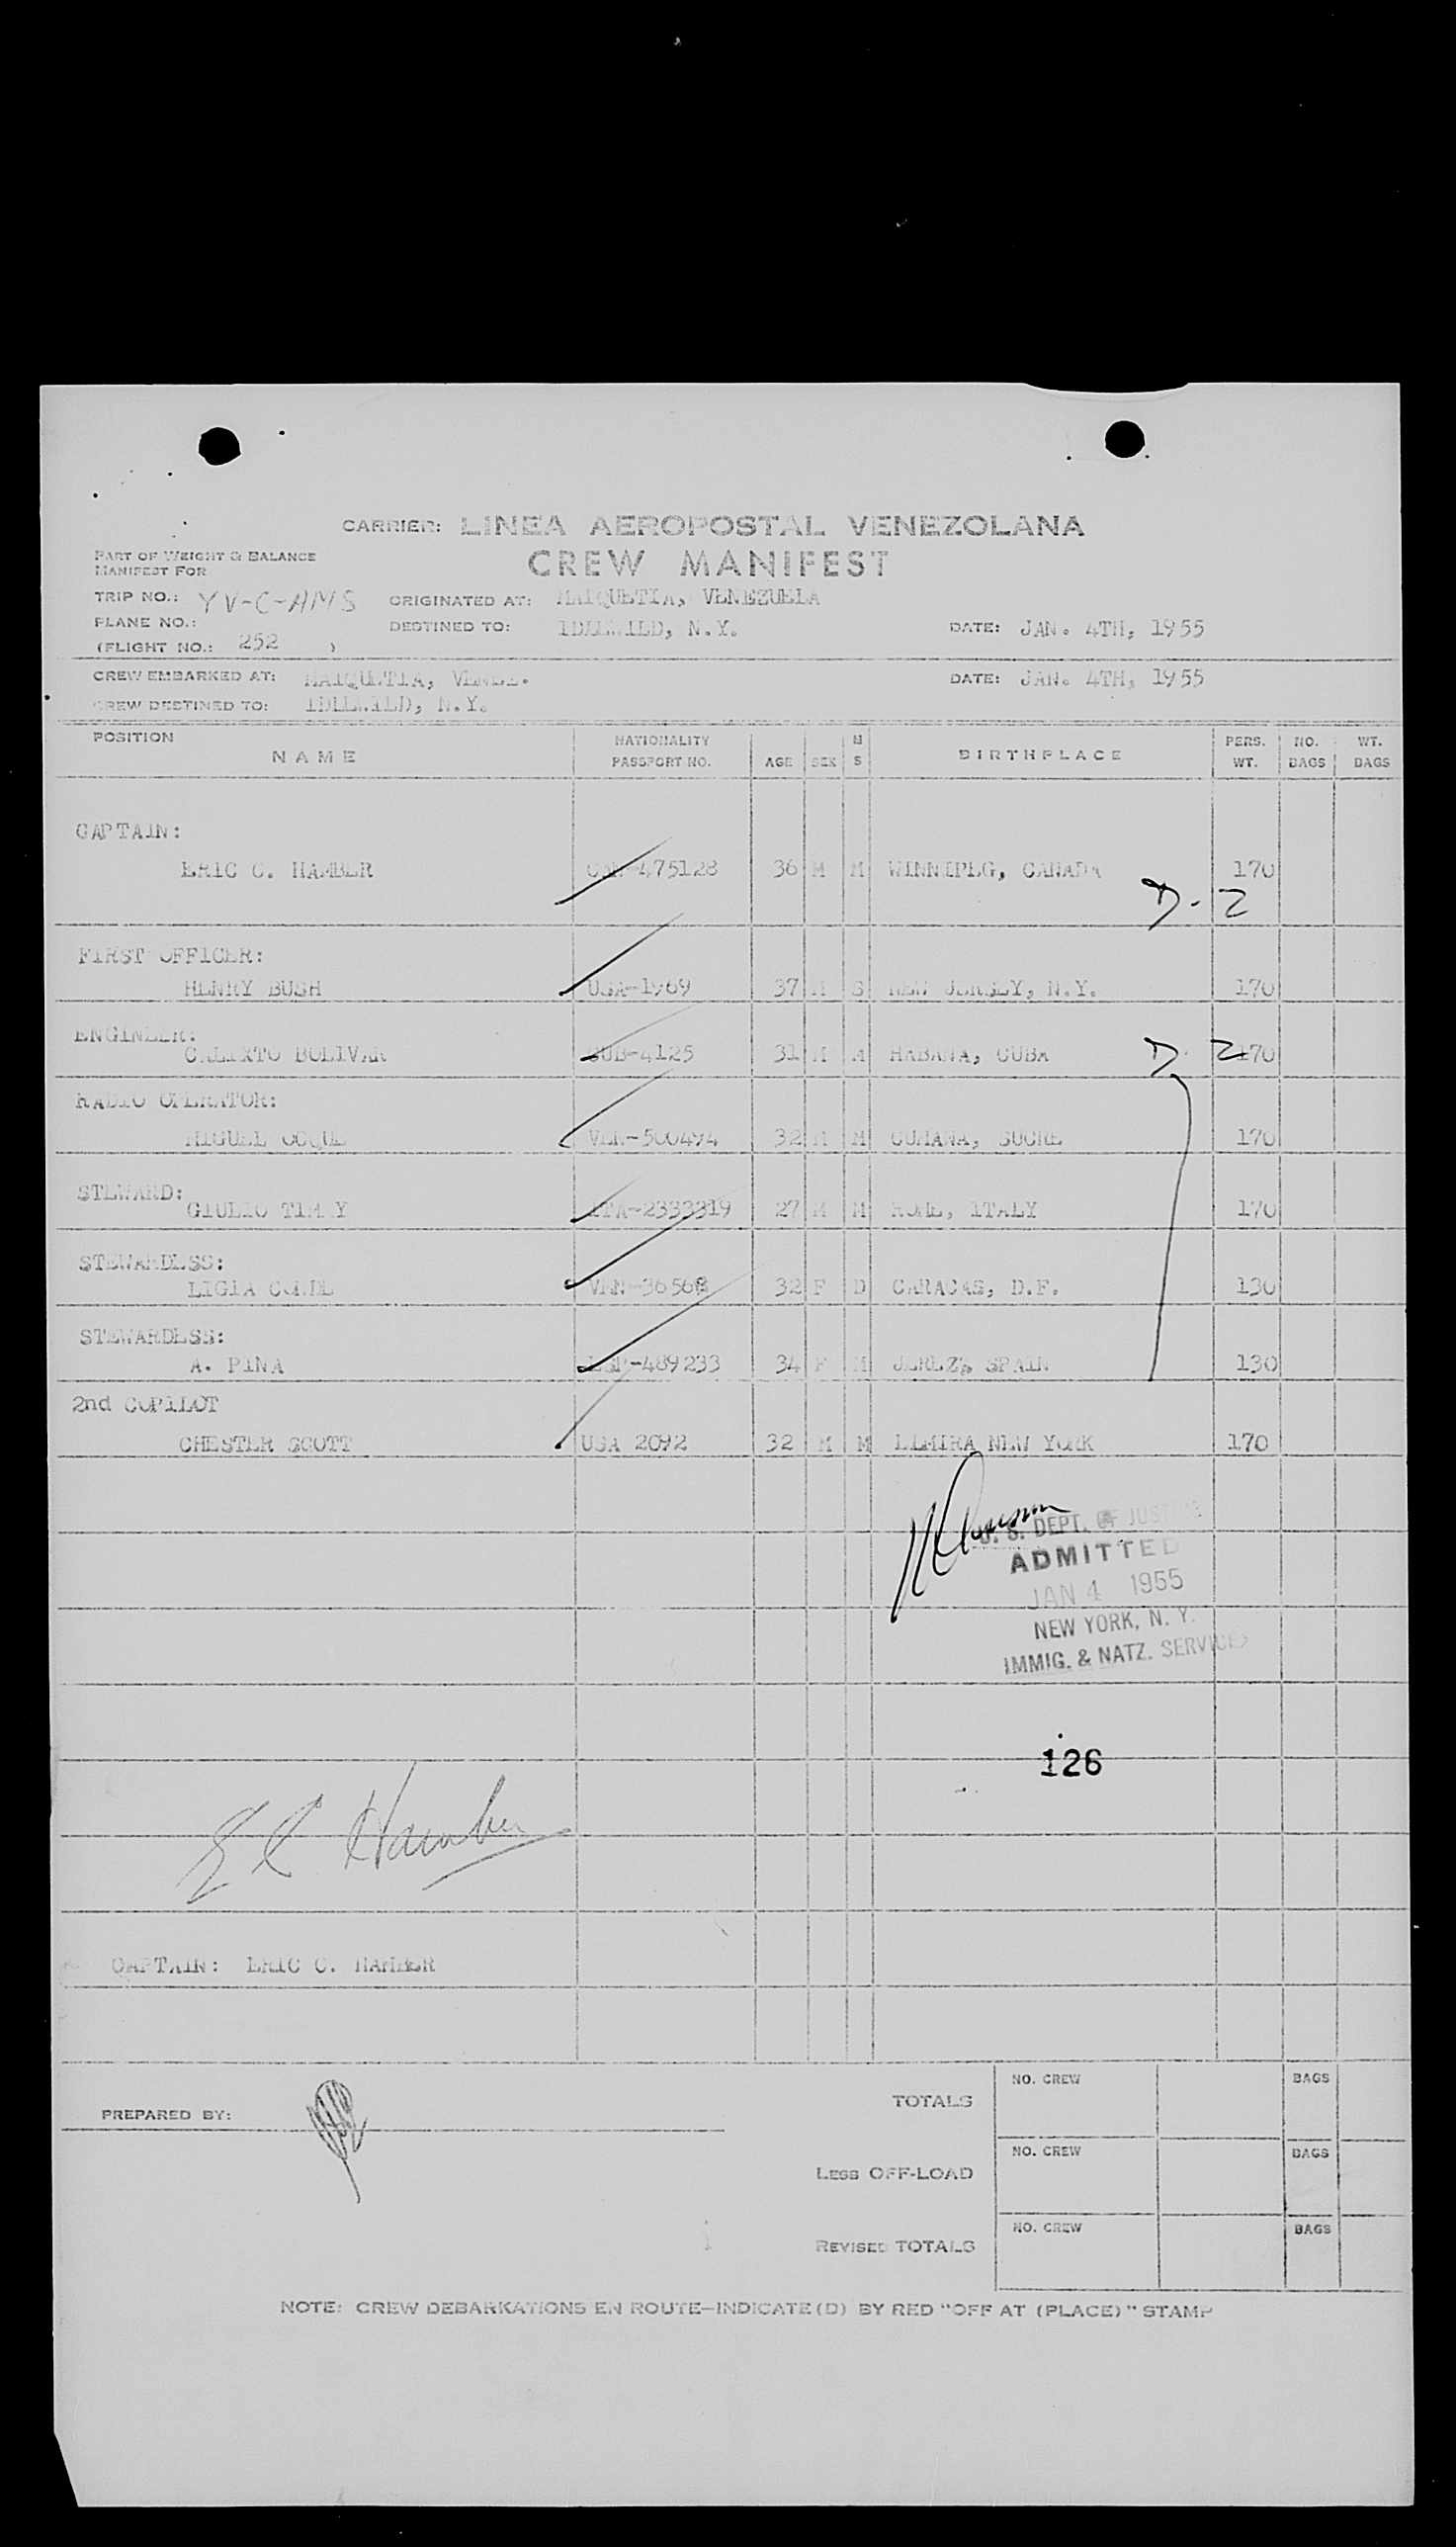 CARRIER: LINEA AEROPOSTAL VENEZOLANA
PART OF WEIGHT & BALANCE
MANIFEST FOR
CREW MANIFEST
TRIP NO.: YV-C-AMS ORIGINATED AT: MAIQUETIA, VENEZUELA
PLANE NO.: DESTINED TO: IDLEWILD, N.Y. DATE: JAN. 4TH, 1955
(FLIGHT NO.: 252 )
CREW EMBARKED AT: MAIQUETIA, VENEZ. DATE: JAN. 4TH, 1955
CREW DESTINED TO: IDLEWILD, N.Y.
POSITION NAME NATIONALITY PASSPORT NO. AGE SEX M S BIRTHPLACE PERS. WT. NO. BAGS WT. BAGS
CAPTAIN:
ERIC C. HAMBER CAN-475128 36 M M WINNIPEG, CANADA 170
D-2
FIRST OFFICER:
HENRY BUSH USA-1969 37 M S NEW JERSEY, N.Y. 170
ENGINEER:
CALIXTO BOLIVAR CUB-4125 31 M M HABANA, CUBA D-2 170
RADIO OPERATOR:
MIGUEL VEN-500494 32 M M CUMANA, SUCRE 170
STEWARD:
GIULIO ITA-2333319 27 M M ROME, ITALY 170
STEWARDESS:
LIGIA CONDE VEN-36568 32 F D CARACAS, D.F. 130
STEWARDESS:
A. PINA ESP-489233 34 F M JEREZ, SPAIN 130
2nd COPILOT
CHESTER SCOTT USA 2092 32 M M ELMIRA NEW YORK 170
U. S. DEPT. OF JUSTICE
ADMITTED
JAN 4 1955
NEW YORK, N. Y.
IMMIG. & NATZ. SERVICE
126
E C Hamber
CAPTAIN: ERIC C. HAMBER
PREPARED BY:
TOTALS NO. CREW BAGS
LESS OFF-LOAD NO. CREW BAGS
REVISED TOTALS NO. CREW BAGS
NOTE: CREW DEBARKATIONS EN ROUTE-INDICATE (D) BY RED "OFF AT (PLACE)" STAMP